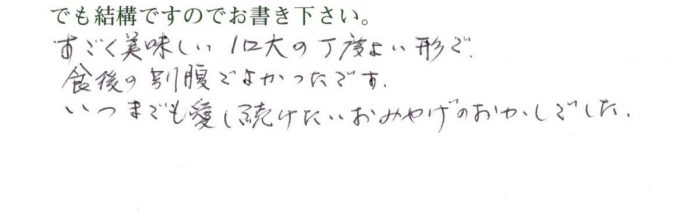 でも結構ですのでお書き下さい。
すごく美味しい1口大の丁度よい形で、
食後の別腹でよかったです。
いつまでも愛し続けたいおみやげのおかしでした。